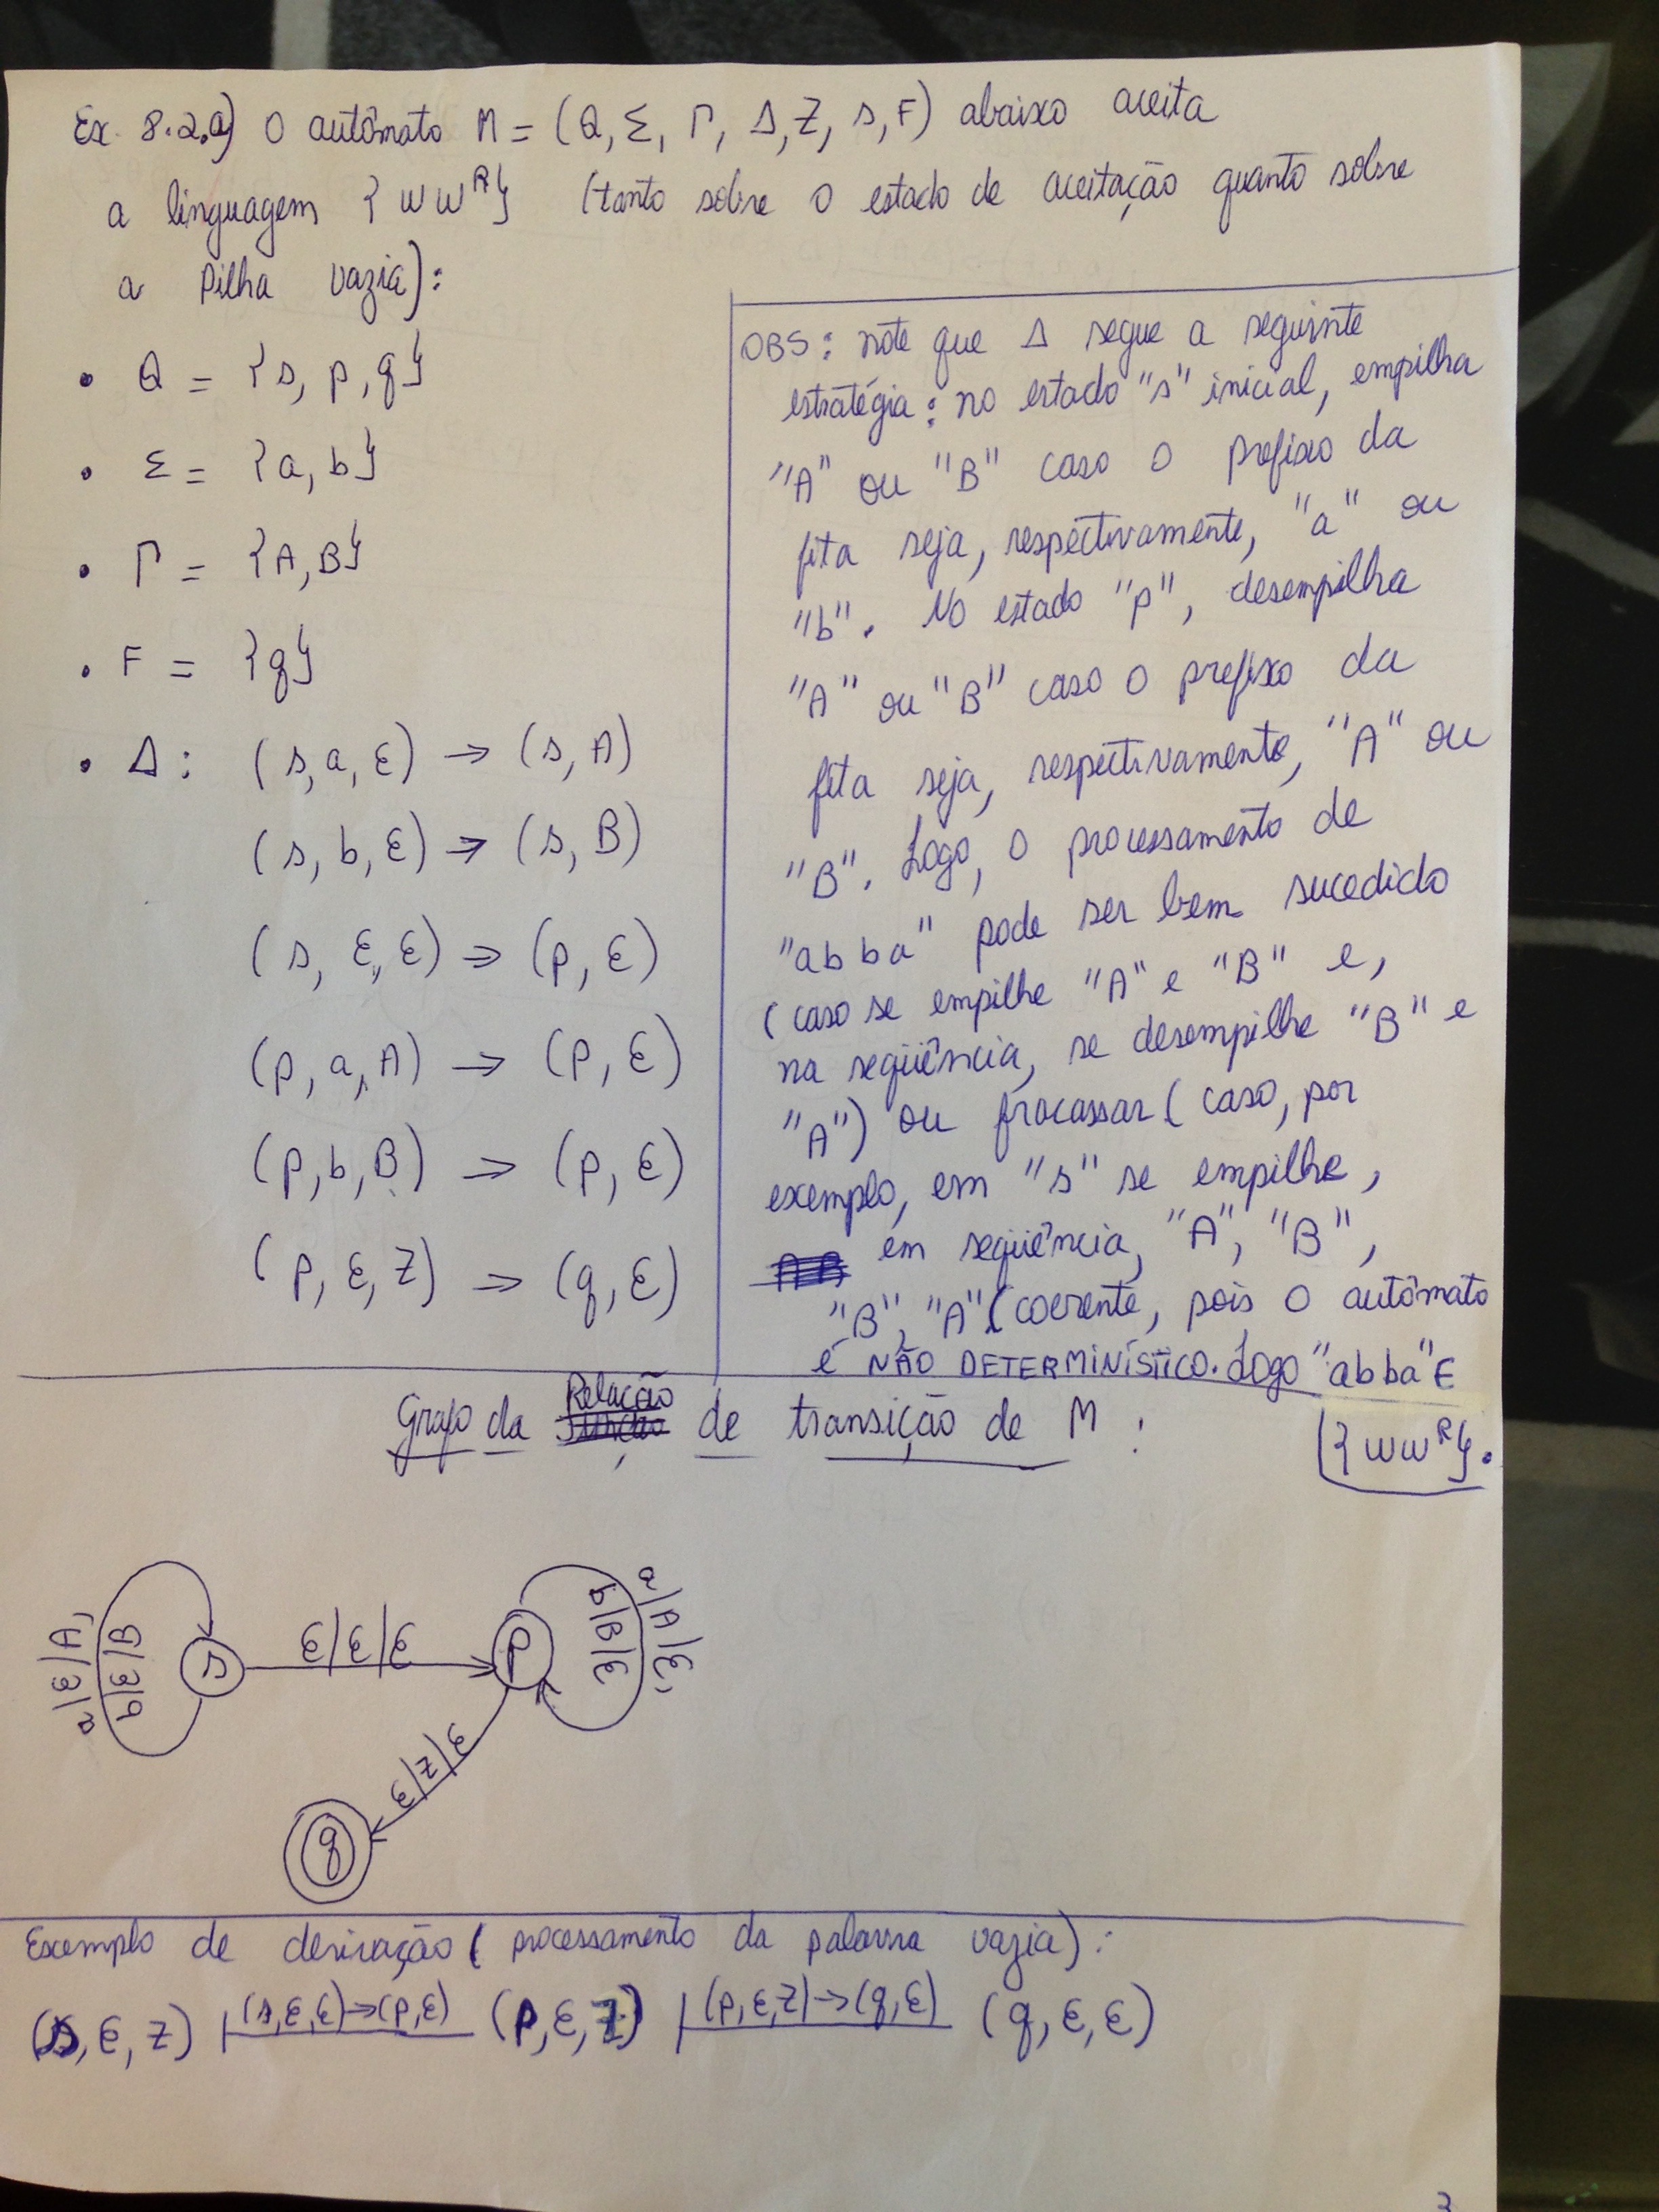 Ex. 8.2.a) O autômato M = (Q, Σ, Γ, Δ, Z, s, F) abaixo aceita
a linguagem {ww^R} (tanto sobre o estado de aceitação quanto sobre
a Pilha vazia):
• Q = {s, p, q}
• Σ = {a, b}
• Γ = {A, B}
• F = {q}
• Δ: (s, a, ε) → (s, A)
(s, b, ε) → (s, B)
(s, ε, ε) → (p, ε)
(p, a, A) → (p, ε)
(p, b, B) → (p, ε)
(p, ε, Z) → (q, ε)
OBS: note que Δ segue a seguinte
estratégia: no estado "s" inicial, empilha
"A" ou "B" caso o prefixo da
fita seja, respectivamente, "a" ou
"b". No estado "p", desempilha
"A" ou "B" caso o prefixo da
fita seja, respectivamente, "A" ou
"B". Logo, o processamento de
"abba" pode ser bem sucedido
(caso se empilhe "A" e "B" e,
na seqüência, se desempilhe "B" e
"A") ou fracassar (caso, por
exemplo, em "s" se empilhe,
em seqüência, "A", "B",
"B", "A" (coerente, pois o autômato
é NÃO DETERMINÍSTICO. Logo "abba" ∈
{ww^R}.
Grafo da Relação de transição de M:
a/ε/A,
b/ε/B
s
ε/ε/ε
p
a/A/ε,
b/B/ε
ε/Z/ε
q
Exemplo de derivação (processamento da palavra vazia):
(s, ε, Z) |(s,ε,ε)→(p,ε) (p, ε, Z) |(p,ε,Z)→(q,ε) (q, ε, ε)
3